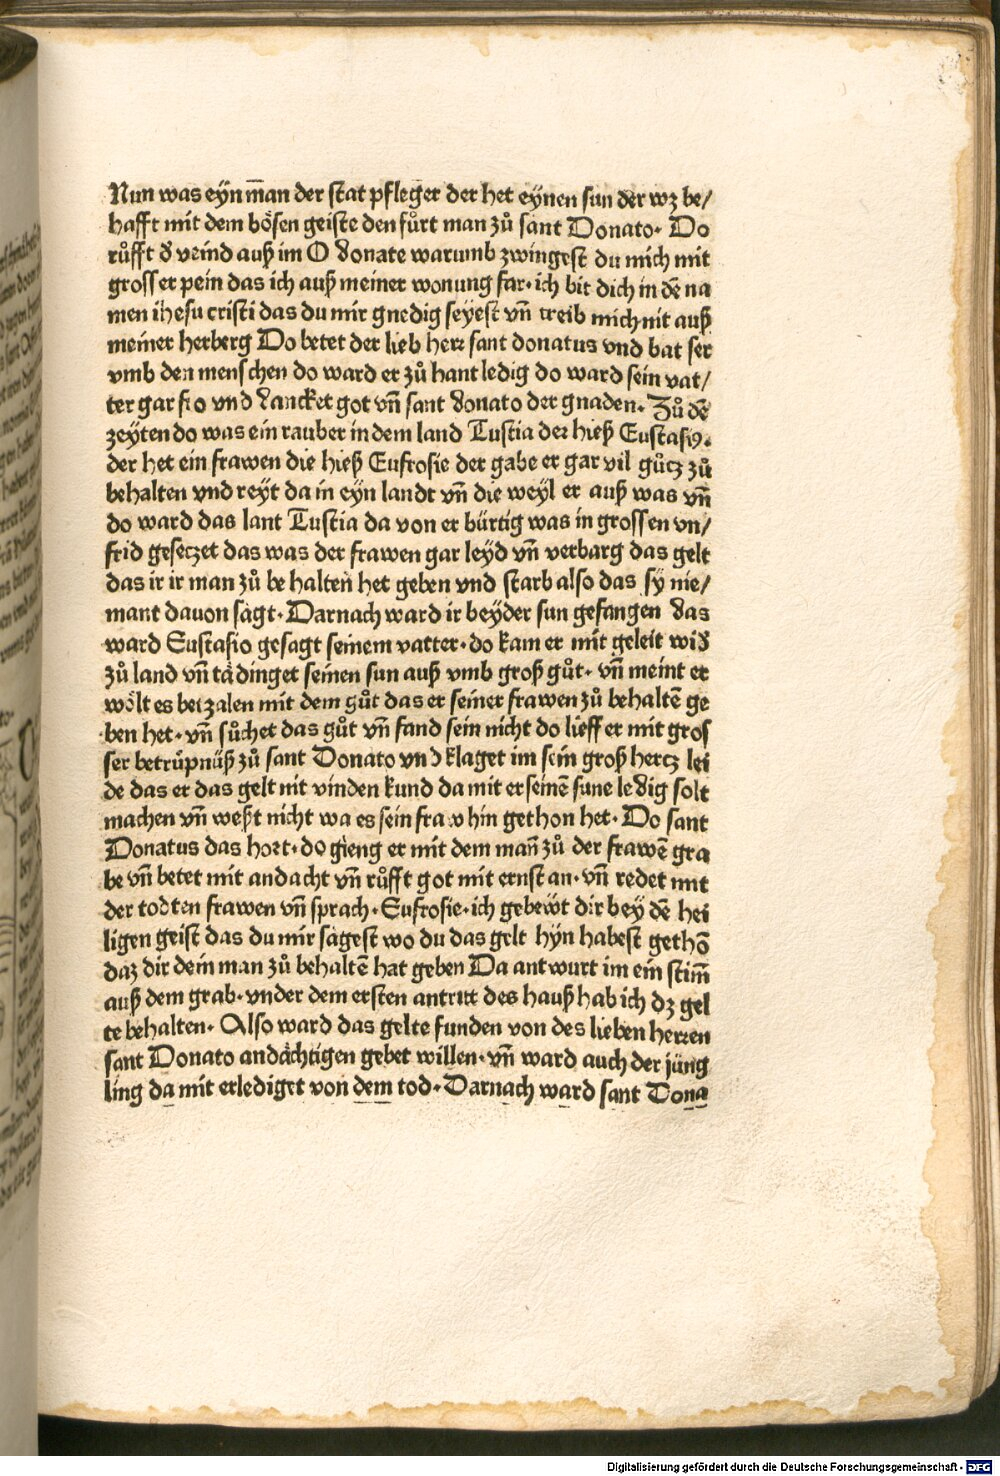 Nun was eÿn m̄an der stat pfleger der het eÿnen sun der wz be/
hafft mit dem bösen geiste den fůrt man zů sant Donato· Do
růfft đ veind auß im O Donate warumb zwingest du mich mit
grosser pein das ich auß meiner wonung far· ich bit dich in dē na
men ihesu cristi das du mir gnedig seyest vn̄ treib mich nit auß
meiner herberg Do betet der lieb herr sant donatus vnd bat ser
vmb den menschen do ward er zů hant ledig do ward sein vat/
ter gar fro vnd Dancket got vn̄ sant Donato der gnaden· Zů dē
zeÿten do was ein rauber in dem land Tuscia der hieß Eustasiꝯ·
der het ein frawen die hieß Eufrosie der gabe er gar vil gůtz zů
behalten vnd reÿt da in eÿn landt vn̄ die weÿl er auß was vn̄
do ward das lant Tuscia da von er bürtig was in grossen vn/
frid gesetzet das was der frawen gar leÿd vn̄ verbarg das gelt
das ir ir man zů be halten het geben vnd starb also das sÿ nie/
mant davon sagt· Darnach ward ir beÿder sun gefangen das
ward Eustasio gesagt seinem vatter· do kam er mit geleit wiđ
zů land vn̄ tädinget seinen sun auß vmb groß gůt· vn̄ meint er
wölt es betzalen mit dem gůt das er seiner frawen zů behaltē ge
ben het· vn̄ sůchet das gůt vn̄ fand sein nicht do lieff er mit gros
ser betrůpnüß zů sant Donato vnd klaget im sein groß hertz lei
de das er das gelt nit vinden kund da mit er seinē sune ledig solt
machen vn̄ weßt nicht wa es sein fraw hin gethon het· Do sant
Donatus das hort· do gieng er mit dem man̄ zů der frawē gra
be vn̄ betet mit andacht vn̄ růfft got mit ernst an· vn̄ redet mit
der todten frawen vn̄ sprach· Eufrosie· ich gebewt dir bey dē hei
ligen geist das du mir sagest wo du das gelt hÿn habest gethō
daz dir dein man zů behaltē hat geben Da antwurt im ein stim̄
auß dem grab· vnder dem ersten antritt des hauß hab ich dz gel
te behalten· Also ward das gelte funden von des lieben herren
sant Donato andächtigen gebet willen· vn̄ ward auch der jüng
ling da mit erlediget von dem tod· Darnach ward sant Dona
Digitalisierung gefördert durch die Deutsche Forschungsgemeinschaft - DFG